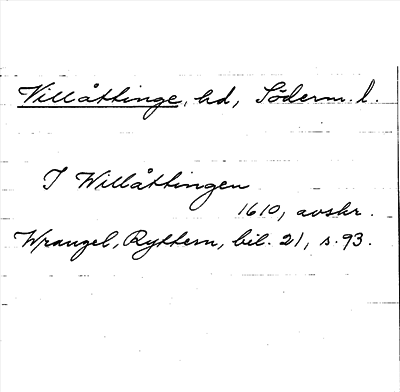 Villåttinge, hd, Söderm. l.
I Willåttingen
1610, avskr.
Wrangel, Ryttern, bil. 21, s. 93.